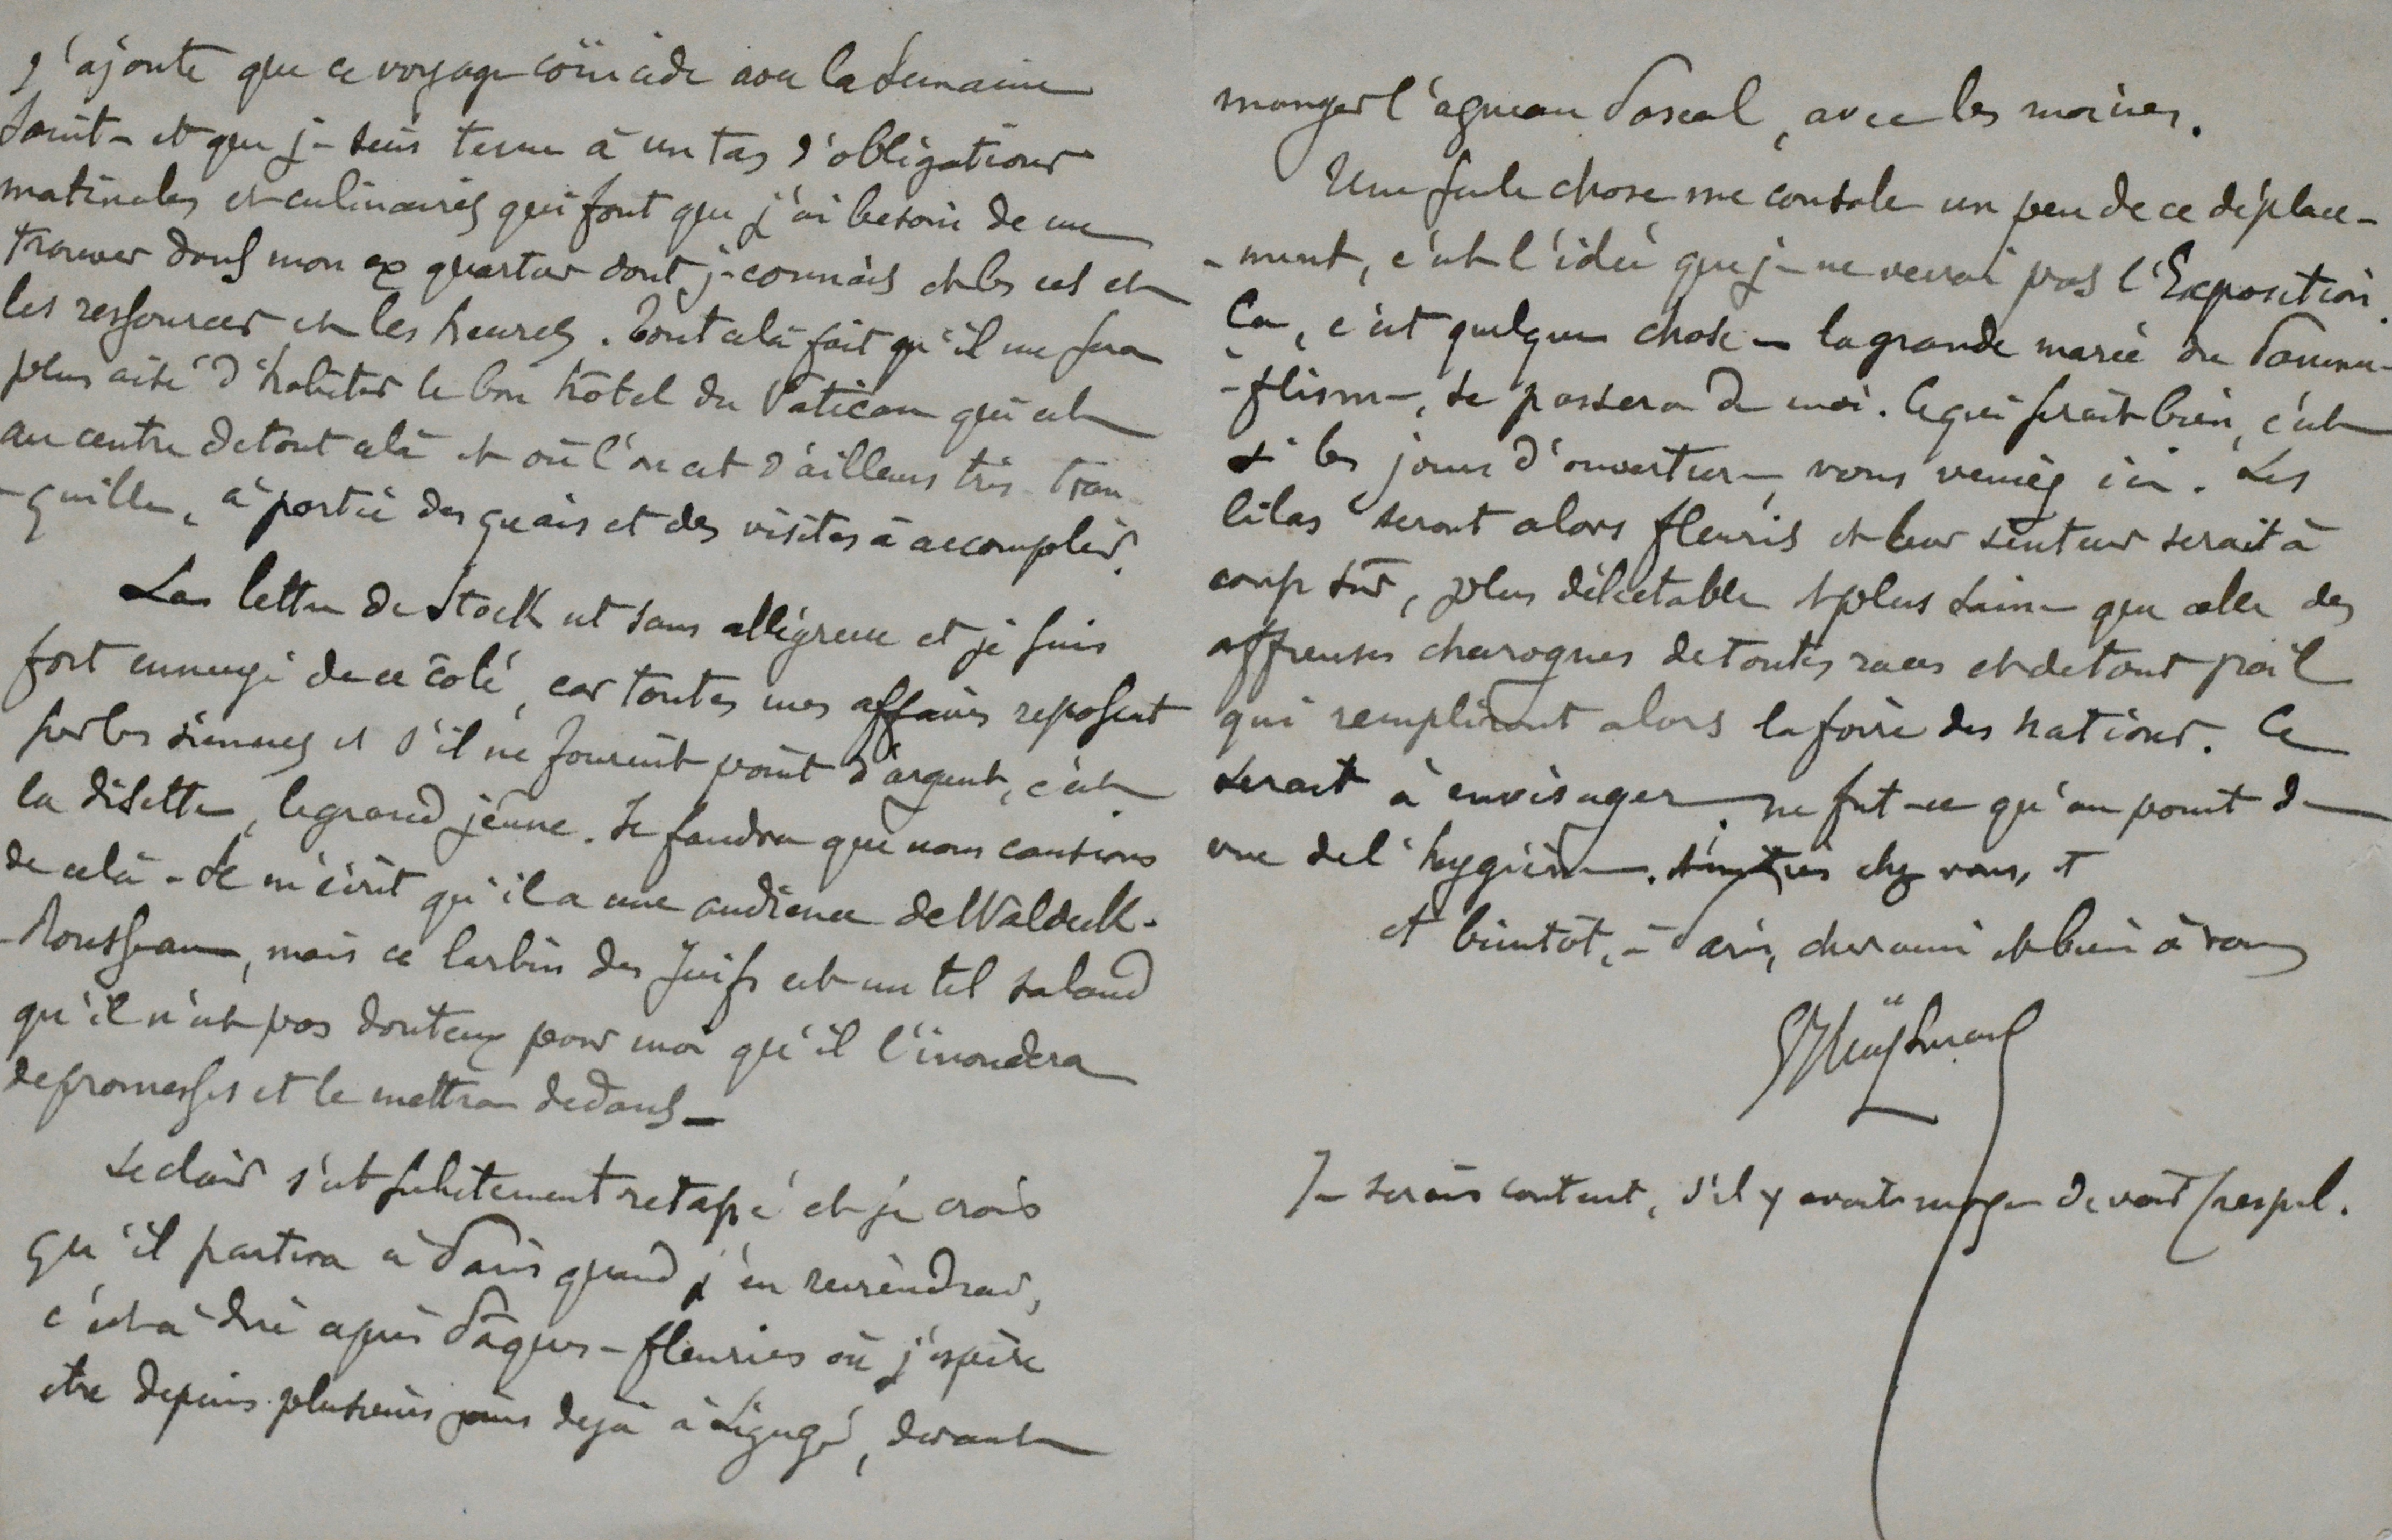 J'ajoute que ce voyage coïncide avec la Semaine
Sainte et que je suis tenu à un tas d'obligations
matinales et culinaires qui font que j'ai besoin de me
trouver dans mon ex quartier dont je connais et les us et
les ressources et les heures. Tout celà fait qu'il me sera
plus aisé d'habiter le bon hôtel du Vatican qui est
au centre de tout celà et où l'on est d'ailleurs très tran
-quille, à portée des quais et des visites à accomplir.
La lettre de Stock est sans allégresse et je suis
fort ennuyé de ce côté, car toutes mes affaires reposent
sur les siennes et s'il ne fournit point d'argent, c'est
la disette, le grand jeûne. Il faudra que nous causions
de celà - Il m'écrit qu'il a une audience de Waldeck-
-Rousseau, mais ce larbin des Juifs est un tel salaud
qu'il n'est pas douteux pour moi qu'il l'inondera
de promesses et le mettra dedans -
Leclair s'est subitement retapé et je crois
qu'il partira à Paris quand j'en reviendrai,
c'est à dire après Pâques-fleuries où j'espère
etre depuis plusieurs jours dejà à Ligugé, devant
manger l'agneau Pascal, avec les moines.
Une seule chose me console un peu de ce déplace-
-ment, c'est l'idée que je ne verrai pas l'Exposition.
Ça, c'est quelque chose - la grande marée du Panmu-
-flisme, se passera de moi. Ce qui serait bien, c'est
si les jours d'ouverture, vous veniez ici. Les
lilas seront alors fleuris et leur senteur serait à
coup sûr, plus délectable et plus saine que celle des
affreuses charognes de toutes races et de tout poil
qui rempliront alors la foire des nations. Ce
serait à envisager, ne fut-ce qu'au point de
vue de l'hygiène. chez vous, et
et bientôt, à Paris, cher ami et bien à vous
JK Huÿsmans
Je serais content, s'il y avait moyen de voir